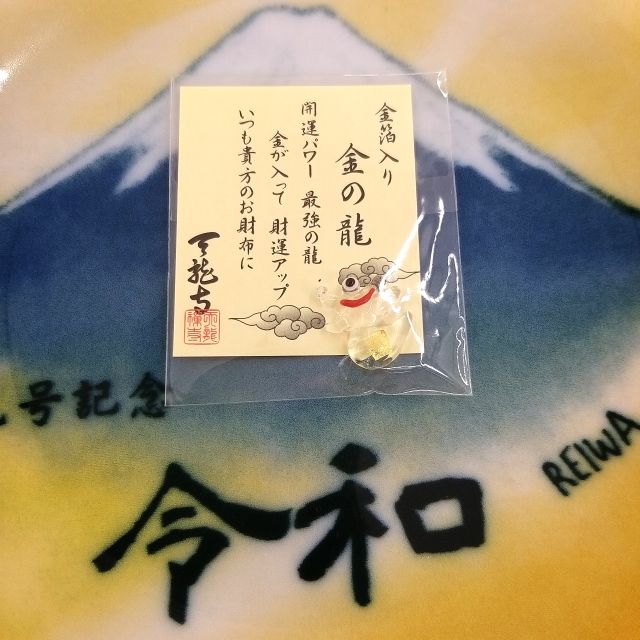 金箔入り
金の龍
開運パワー 最強の龍
金が入って 財運アップ
いつも貴方のお財布に
天龍寺
号記念
令和
REIWA